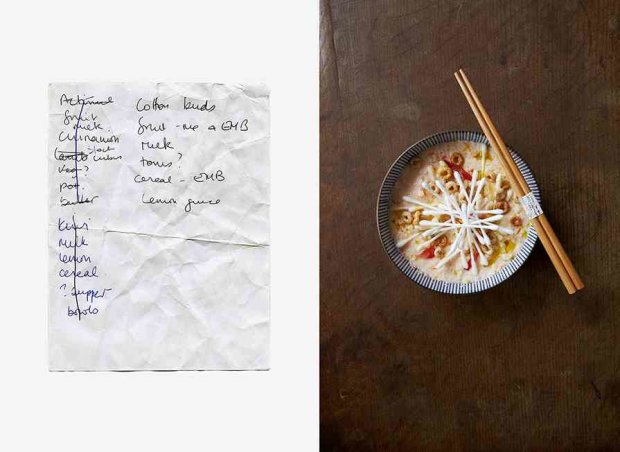 Actimel
fruit
milk
cinnamon
veg?
pot.
butter
Kiwi
milk
lemon
cereal
? supper
bowls
Cotton buds
fruit - me & EMB
milk
toms?
cereal - EMB
lemon juice